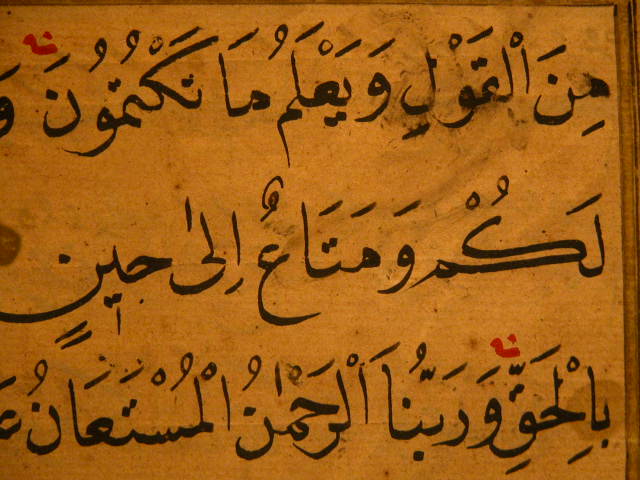 مِنَ الْقَوْلِ وَيَعْلَمُ مَا تَكْتُمُونَ
لَكُمْ وَمَتَاعٌ اِلىٰ حينٍ
بِالْحَقِّ وَرَبُّنَا الرَّحْمٰنُ الْمُسْتَعَانُ